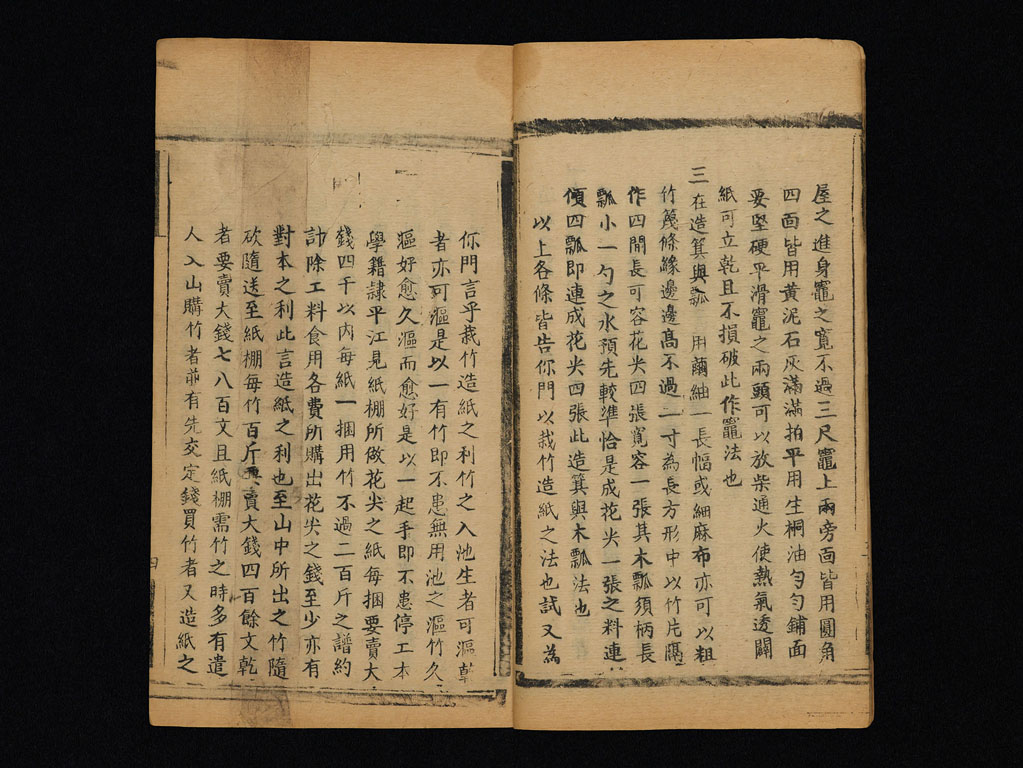 屋之進身竈之寬不過三尺竈上兩旁面皆用圓角
四面皆用黃泥石灰滿滿拍平用生桐油勻勻鋪面
要堅硬平滑竈之兩頭可以放柴通火使熱氣透開
紙可立乾且不損破此作竈法也
三在造簊與瓢 用繭紬一長幅或細麻布亦可以粗
竹篾條緣邊邊高不過一寸為長方形中以竹片隔
作四開長可容花尖四張寬容一張其木瓢須柄長
瓢小一勺之水預先較準恰是成花尖一張之料連
傾四瓢即連成花尖四張此造簊與木瓢法也
以上各條皆告你門以栽竹造紙之法也試又為
你門言乎栽竹造紙之利竹之入池生者可漚乾
者亦可漚是以一有竹即不患無用池之漚竹久
漚好愈久漚而愈好是以一起手即不患停工本
學籍隸平江見紙棚所做花尖之紙每捆要賣大
錢四千以內每紙一捆用竹不過二百斤之譜約
計除工料食用各費所購出花尖之錢至少亦有
對本之利此言造紙之利也至山中所出之竹隨
砍隨送至紙棚每竹百斤要賣大錢四百餘文乾
者要賣大錢七八百文且紙棚需竹之時多有遣
人入山購竹者並有先交定錢買竹者又造紙之